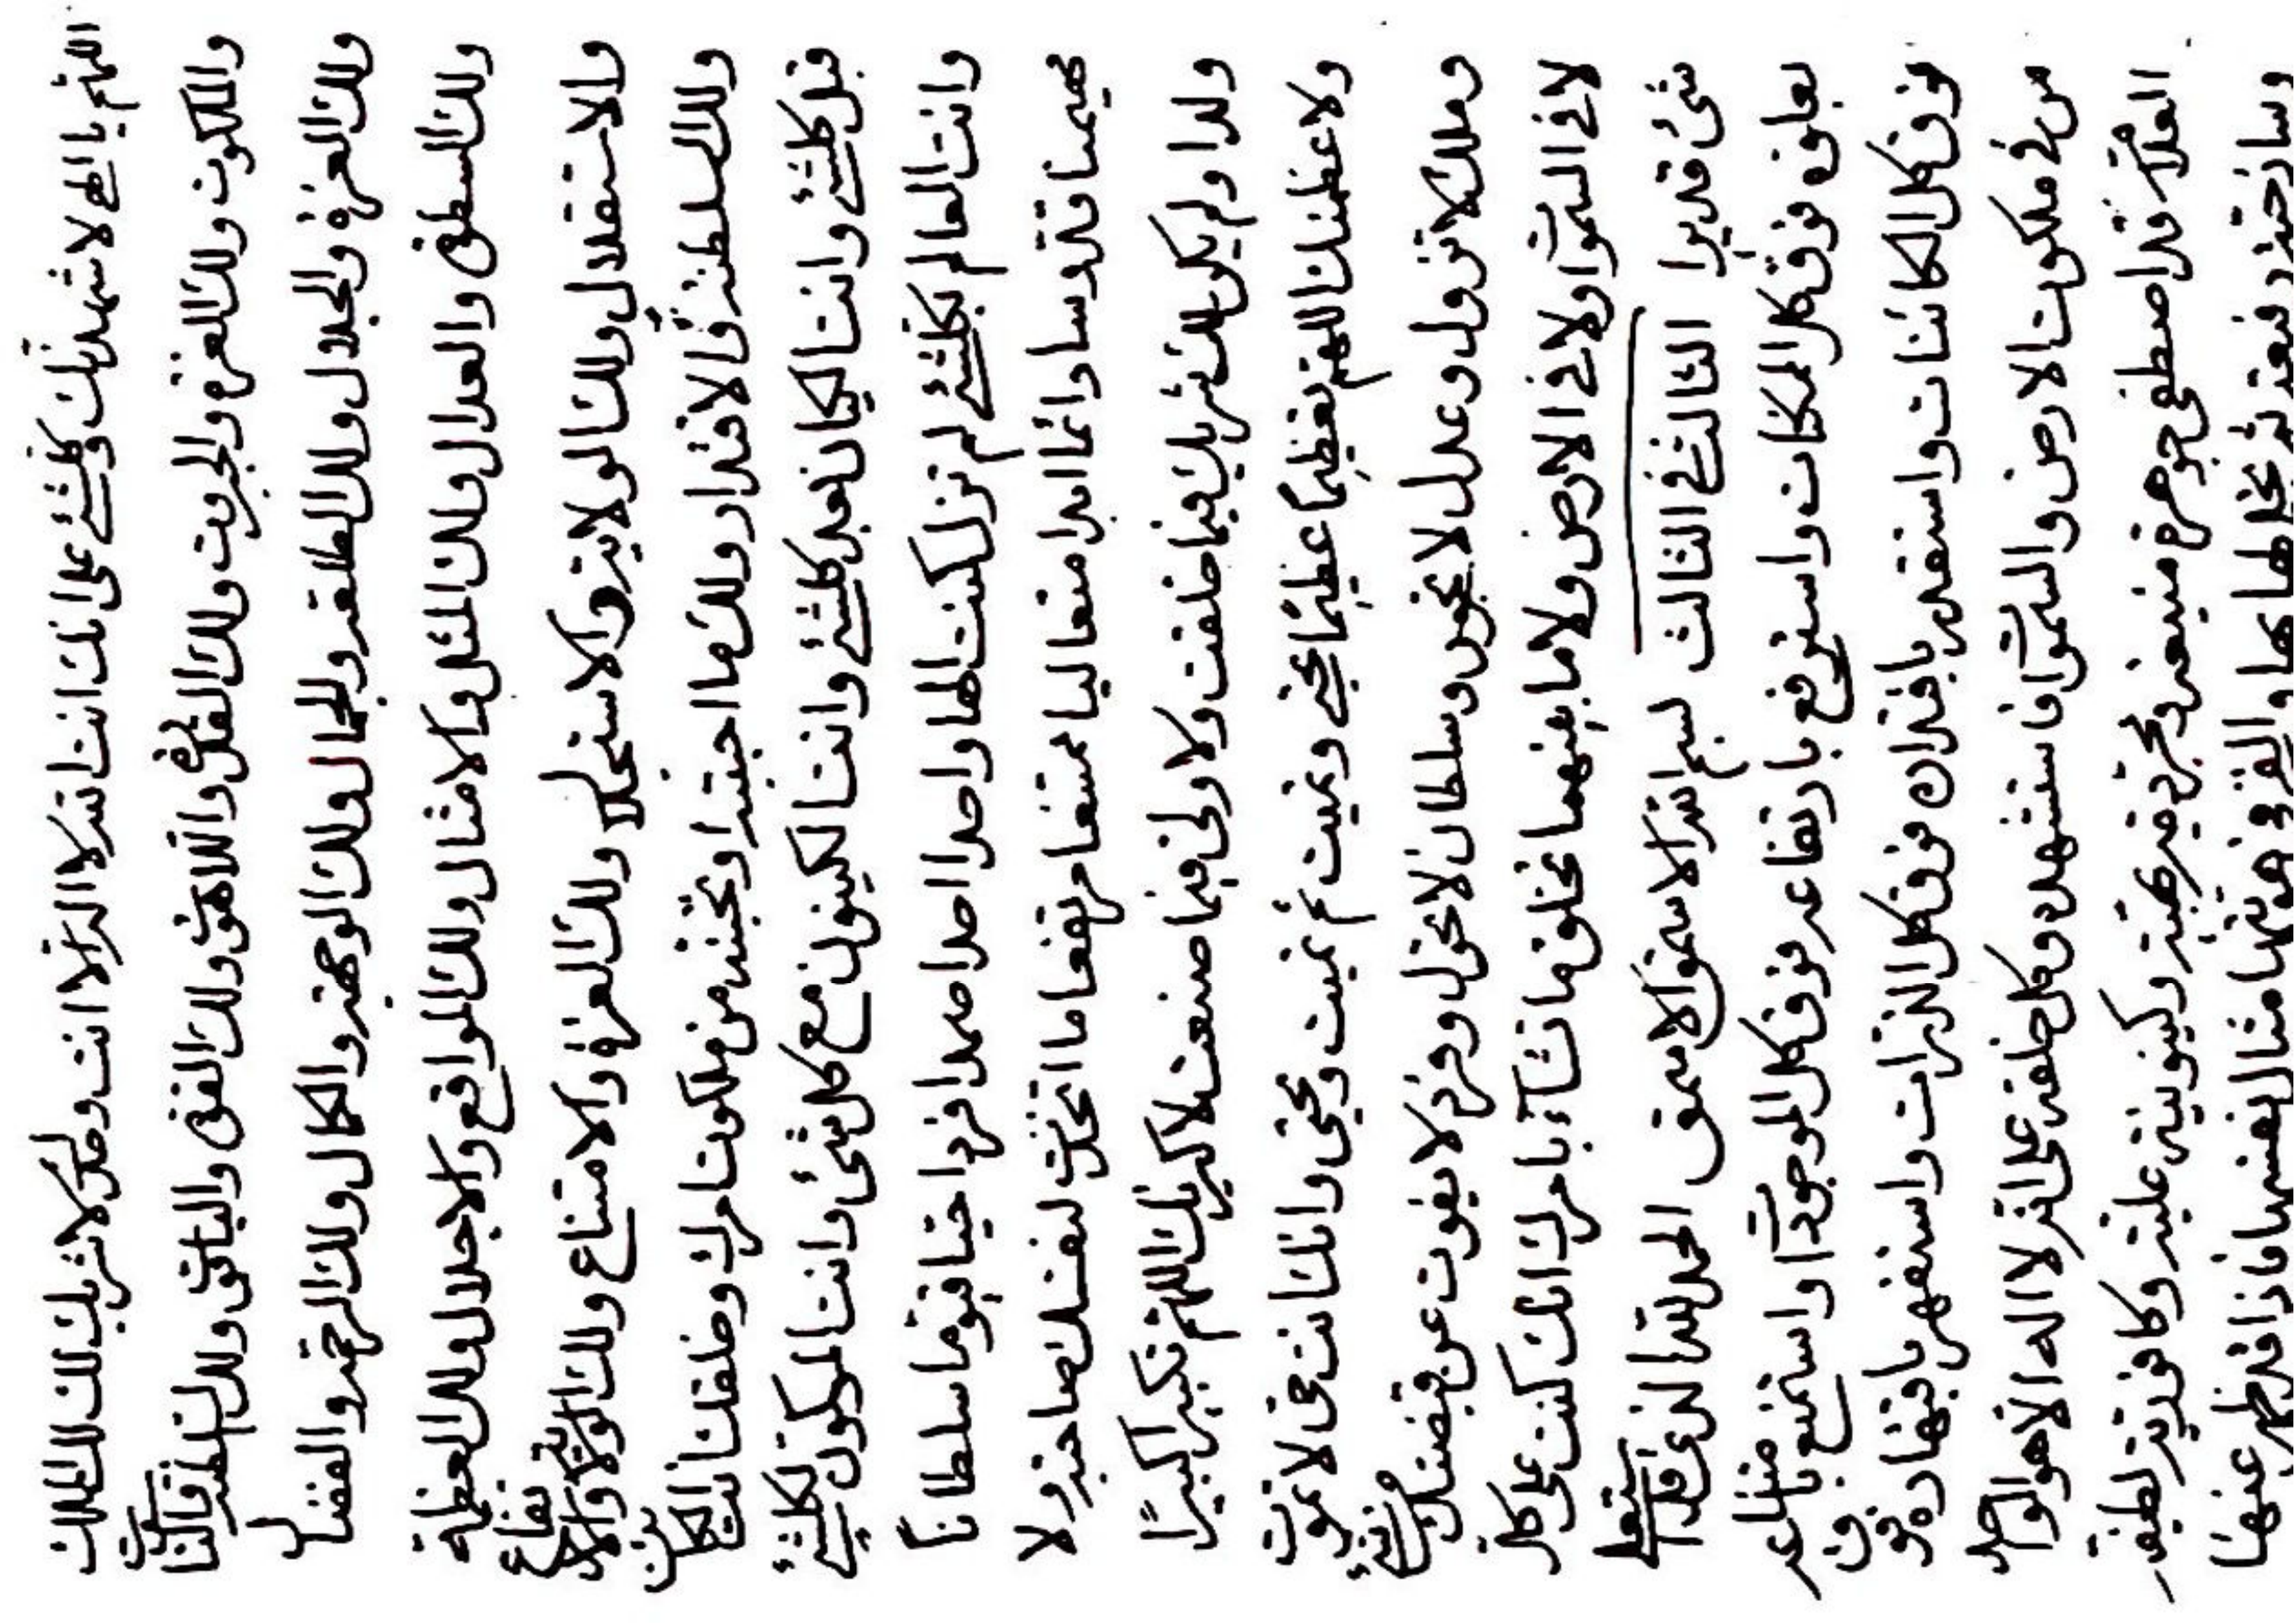 اللهم يا الهي لاشهدنك وكلشئ على انك انت الله لا اله الا انت وحدك لا شريك لك لك الملك
والملكوت ولك العز والجبروت ولك القدرة واللاهوت ولك القوة والياقوت ولك السلطنة والناسوت
ولك العزة والجلال ولك الطلعة والجمال ولك الوجهة والكمال ولك الرحمة والفضال
ولك السطوة والعدال ولك المثل والامثال ولك المواقع والاجلال ولك العظمة
والاستقلال ولك الولاية والاستجلال ولك العزة والامتناع ولك القوة والارتفاع
ولك السلطنة والاقتدار ولك ما احببته او تحببنه من ملكوت امرك وخلقك انت الكائن
قبل كلشئ وانت الكيان بعد كلشئ وانت الكينون مع كل شئ وانت المكون لكلشئ
وانت العالم بكلشئ لم تزل كنت الها واحدا احدا صمدا فردا حيا قيوما سلطانا
مهيمنا قدوسا دائما ابدا متعاليا ممتنعا مرتفعا ما اتخذت لنفسك صاحبة ولا
ولدا ولم يكن لك شريك فيما خلقت ولا ولى فيما صنعت لاكبرنك اللهم تكبيرا كبيرًا
ولاعظمنك اللهم تعظيما عظيمًا تحيى وتميت ثم تميت وتحيى وانك انت حى لا تموت
وملك لا تزول وعدل لا تجور وسلطان لا تحول وفرد لا يفوت عن قبضتك من شئ
لا في السموات ولا في الارض ولا ما بينهما تخلق ما تشآء بامرك انك كنت على كل
شئ قديرا الثالث في الثالث بسم الله الاسمق الاسمق الحمد لله الذى قد استعلى
بعلوه فوق كل الممكنات واسترفع بارتفاعه فوق كل الموجودات واستمنع بامتناعه
فوق كل الكائنات واستقدر باقتداره فوق كل الذرات واستقهر باقتهاره فوق
من في ملكوت الارض والسموات فاستشهده وكل خلقه على انه لا اله الا هو الواحد
العلام قد اصطفى جوهرة منيعة ومجردية بهية وكينونية علية وكافورية لطيفة
وساذجية رفيعة ثم تجلى لها بها والقى في هويتها مثال نفسها فاذا قد ظهر عنها